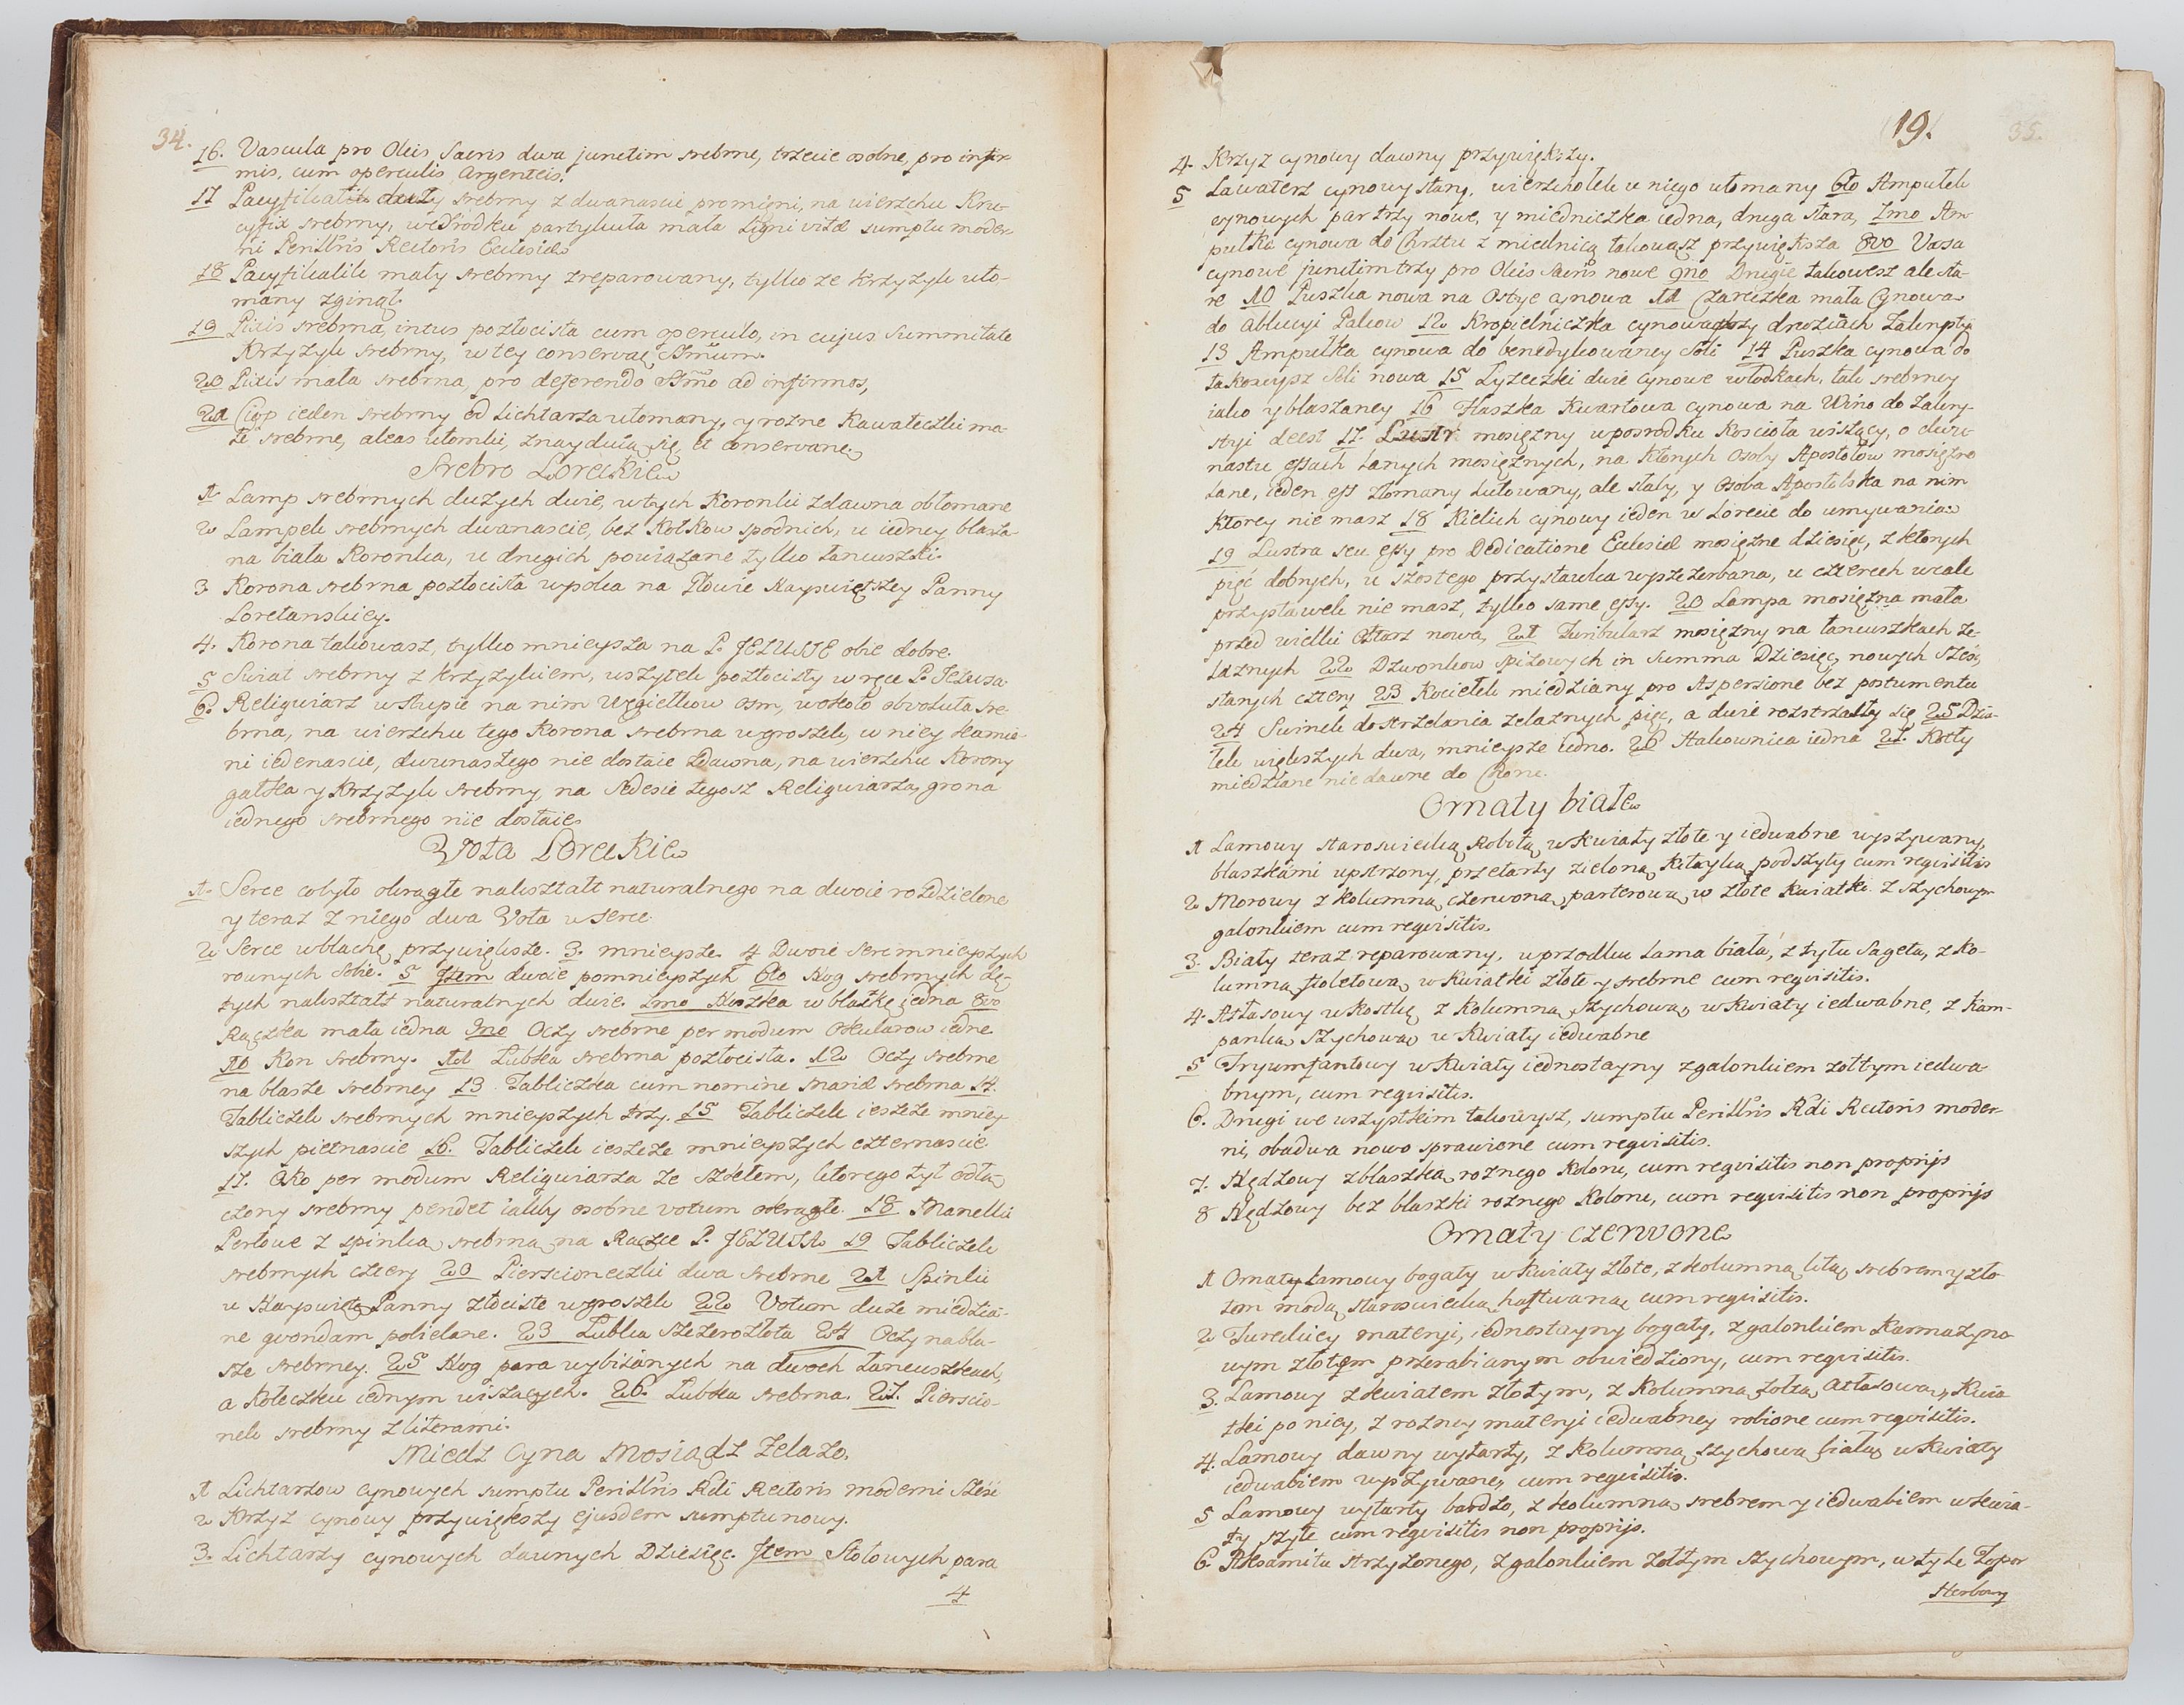 34.
16. Vascula pro Oleis Sacris dwa junctim srebrne, trzecie osobne, pro infir-
mis, cum operculis Argenteis.
17 Pacyfikalik duży srebrny z dwanascie promięni, na wierzchu Kru-
cyfix srebrny, weśrodku partykuła mała Ligni vitæ sumptu moder-
ni Perillris Rectoris Ecclesiæ
18 Pacyfikalik mały srebrny zreparowany, tylko ze krzyzyk uło-
many zginął.
19 Pixis srebrna, intus pozłocista cum operculo, in cujus summitate
Krzyzyk srebrny, w tey conservat Ssmum.
20 Pixis mała srebrna, pro deferendo Ssmo ad infirmos,
21 Czop ieden srebrny od Lichtarza ułomany, y rozne Kawałeczki ma-
łe srebrne, aleas ułomki, znayduią się, et conservane.
Srebro Loretkie
1 Lamp srebrnych duzych dwie, w tych Koronki zdawna obłomane
2 Lampek srebrnych dwanascie, bez Kołkow spodnich, u iedney blasza-
na biała Koronka, u drugich powiązane tylko łancuszki.
3 Korona srebrna pozłocista wpoła na Głowie Nayswiętszey Panny
Loretanskiey.
4. Korona takowasz, tylko mnieysza na P. JEZUSIE obie dobre.
5 Swiat srebrny z krzyzykiem, wszytek pozłocisty w ręce P. Jezusa
6. Religwiarz w słupie na nim Węgiełkow osm, wokoło obwoluta sre-
brna, na wierzchu tego Korona srebrna w groszek, w niey kamie-
ni iedenascie, dwunastego nie dostaie zdawna, na wierzchu Korony
gałka y Krzyzyk srebrny, na Sedesie tegosz Religwiarza, grona
iednego srebrnego nie dostaie
Vota Loretkie
1. Serce co było okrągłe nakształt naturalnego na dwoie rozdzielone
y teraz z niego dwa Vota w serce
2 Serce w blachę przywiększe. 3. mnieysze. 4 Dwoie serc mnieyszych
rownych sobie. 5 Item dwoie pomnieyszych 6to Nog srebrnych dę-
tych nakształt naturalnych dwie. 7mo Noszka w blaszkę iedna 8vo
Rączka mała iedna 9no Oczy srebrne per modum Okularow iedne
10 Kon srebrny. 11 Lubka srebrna pozłocista. 12 Oczy srebrne
na blasze srebrney 13 Tabliczka cum nomine Mariæ srebrna 14.
Tabliczek srebrnych mnieyszych trzy. 15 Tabliczek ieszcze mniey-
szych pietnascie 16. Tabliczek ieszcze mnieyszych czternascie
17. Oko per modum Religwiarza ze szkłem, ktorego tył odłą-
czony srebrny pendet iakby osobne votum okrągłe. 18 Manelki
Perłowe z spinką srebrną na Rączce P. JEZUSA 19 Tabliczek
srebrnych cztery 20 Pierscioneczki dwa srebrne 21 Spinki
u Nayswięt. Panny złociste w groszek 22 Votum duze miedzia-
ne qvondam pobielane. 23 Lubka szczerozłota 24 Oczy na bla-
sze srebrney. 25 Nog para wybiianych na dwoch łancuszkach,
a Kołeczku iednym wiszących. 26. Lubka srebrna. 27. Pierscio-
nek srebrny z literami.
Miedz Cyna Mosiądz Zelazo.
1 Lichtarzow cynowych sumptu Perillris Rdi Rectoris moderni Sześć
2 Krzyz cynowy przywiększy ejusdem sumptu nowy.
3. Lichtarzy cynowych dawnych Dziesięc. Item Stołowych para
4
19.
35.
4. Krzyz cynowy dawny przywiększy.
5 Lawaterz cynowy stary, wierzchołek u niego ułomany 6to Ampułek
cynowych par trzy nowe, y miedniczka iedna, druga stara, 7mo Am-
pułka cynowa do Chrztu z miednicą takowasz przywiększa 8vo Vasa
cynowe junctim trzy pro Oleis Sacris nowe 9no Drugie takowesz ale sta-
re 10 Puszka nowa na Ostye cynowa 11 Czareczka mała Cynowa
do Ablucyi Palcow 12 Kropielniczka cynowa przy drzwiach Zakrystyi
13 Ampułka cynowa do benedykowaney Soli 14 Puszka cynowa do
takoweysz Soli nowa 15 Lyzeczki dwie cynowe w łodkach, tak srebrney
iako y blaszaney 16 Flaszka Kwartowa cynowa na Wino do Zakry-
styi deest 17. Lustr mosięzny w posrodku Koscioła wiszący, o dwu-
nastu essach lanych mosięznych, na ktorych Osoby Apostołow mosięzne
lane, ieden ess złomany lutowany, ale stały, y Osoba Apostolska na nim
ktorey nie masz 18 Kielich cynowy ieden w Lorecie do umywania
19 Lustra seu essy pro Dedicatione Ecclesiæ mosięzne dziesięć, z ktorych
pięć dobrych, u szostego przystawka wyszczerbana, u czterech wcale
przystawek nie masz, tylko same essy. 20 Lampa mosięzna mała
przed wielki Ołtarz nowa, 21 Turibularz mosięzny na łancuszkach że-
laznych 22 Dzwonkow spizowych in summa Dziesięć, nowych sześć,
starych cztery 23 Kociełek miedziany pro Aspersione bez postumentu
24 Swinek do strzelania zelaznych pięc, a dwie rozstrzały się 25 Dzia-
łek większych dwa, mnieysze iedno. 26 Hakownica iedna 27. Kotły
miedziane nie dawne do Choru.
Ornaty białe
1 Lamowy staroswiecką Robotą w Kwiaty złote y iedwabne wyszywany,
blaszkami upstrzony, przetarty zieloną Kitayką podszyty cum reqvisitis
2 Morowy z kolumną czerwoną parterową w złote Kwiatki z szychowym
galonkiem cum reqvisitis.
3. Biały teraz reparowany, w przodku Lama biała, z tyłu Sageta, z Ko-
lumną fioletową w kwiatki złote y srebrne cum reqvisitis.
4. Atłasowy w Kostkę z Kolumną szychową, w Kwiaty iedwabne, z Kam-
panką szychową w Kwiaty iedwabne
5 Tryumfantowy w Kwiaty iednostayny z galonkiem zołtym iedwa-
bnym, cum reqvisitis.
6. Drugi we wszystkim takowysz, sumptu Perillris Rdi Rectoris moder-
ni, obadwa nowo sprawione cum reqvisitis.
7. Nędzowy z blaszką roznego Koloru, cum reqvisitis non proprijs
8 Nędzowy bez blaszki roznego Koloru, cum reqvisitis non proprijs
Ornaty czerwone
1 Ornat Lamowy bogaty w Kwiaty złote, z kolumną litą srebrem y zło-
tem modą staroswiecką haftwaną cum reqvisitis.
2 Tureckiey materyi, iednostayny bogaty, z galonkiem Karmazyno-
wym złotem przerabianym obwiedziony, cum reqvisitis.
3. Lamowy z kwiatem złotym, z Kolumną zołtą Atłasową, Kwia-
tki po niey, z rozney materyi iedwabney robione cum reqvisitis.
4. Lamowy dawny wytarty, z Kolumną szychową białą w Kwiaty
iedwabiem wyszywane, cum reqvisitis.
5 Lamowy wytarty bardzo, z kolumną srebrem y iedwabiem w kwia-
ty szyte cum reqvisitis non proprijs.
6 Axamitu strzyzonego, z galonkiem zołtym szychowym, w tyle Topor
Herbowy